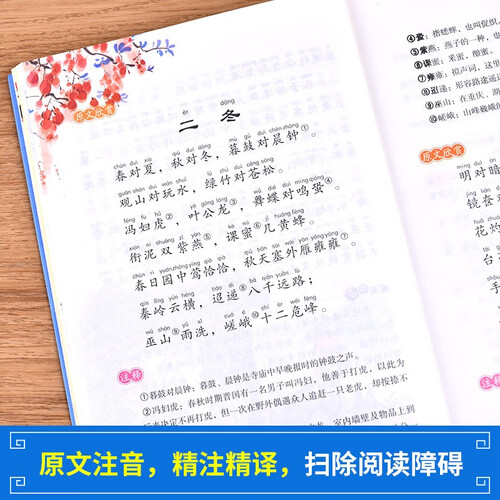 原文欣赏
èr dōng
二 冬
chūn duì xià qiū duì dōng mù gǔ duì chén zhōng
春对夏，秋对冬，暮鼓对晨钟①。
guān shān duì wán shuǐ lǜ zhú duì cāng sōng
观山对玩水，绿竹对苍松。
féng fù hǔ yè gōng lóng wǔ dié duì míng qióng
冯妇虎②，叶公龙③，舞蝶对鸣蛩④。
xián ní shuāng zǐ yàn kè mì jǐ huáng fēng
衔泥双紫燕⑤，课蜜⑥几黄蜂。
chūn rì yuán zhōng yīng qià qià qiū tiān sài wài yàn yōng yōng
春日园中莺恰恰，秋天塞外雁雍雍⑦。
qín lǐng yún héng tiáo dì bā qiān yuǎn lù
秦岭云横，迢递⑧八千远路；
wū shān yǔ xǐ cuó é shí èr wēi fēng
巫山⑨雨洗，嵯峨⑩十二危峰。
注释
①暮鼓对晨钟：暮鼓、晨钟是寺庙中早晚报时的钟鼓之声。
②冯妇虎：春秋时期晋国有一名男子叫冯妇，他善于打虎，以此为
决定不再打虎，但一次在野外偶遇众人追赶一只老虎，却按捺不
室内墙壁及物品上到
④蛩：指蟋蟀，也叫促织
⑤紫燕：燕子的一种，也
⑥课蜜：采蜜，酿蜜。
⑦雍雍：拟声词，这里
⑧迢递：形容路途遥远
⑨巫山：在重庆、湖
⑩嵯峨：山峰巍峨
原文欣赏
明对暗
镜奁对
花灼
台
原文注音，精注精译，扫除阅读障碍